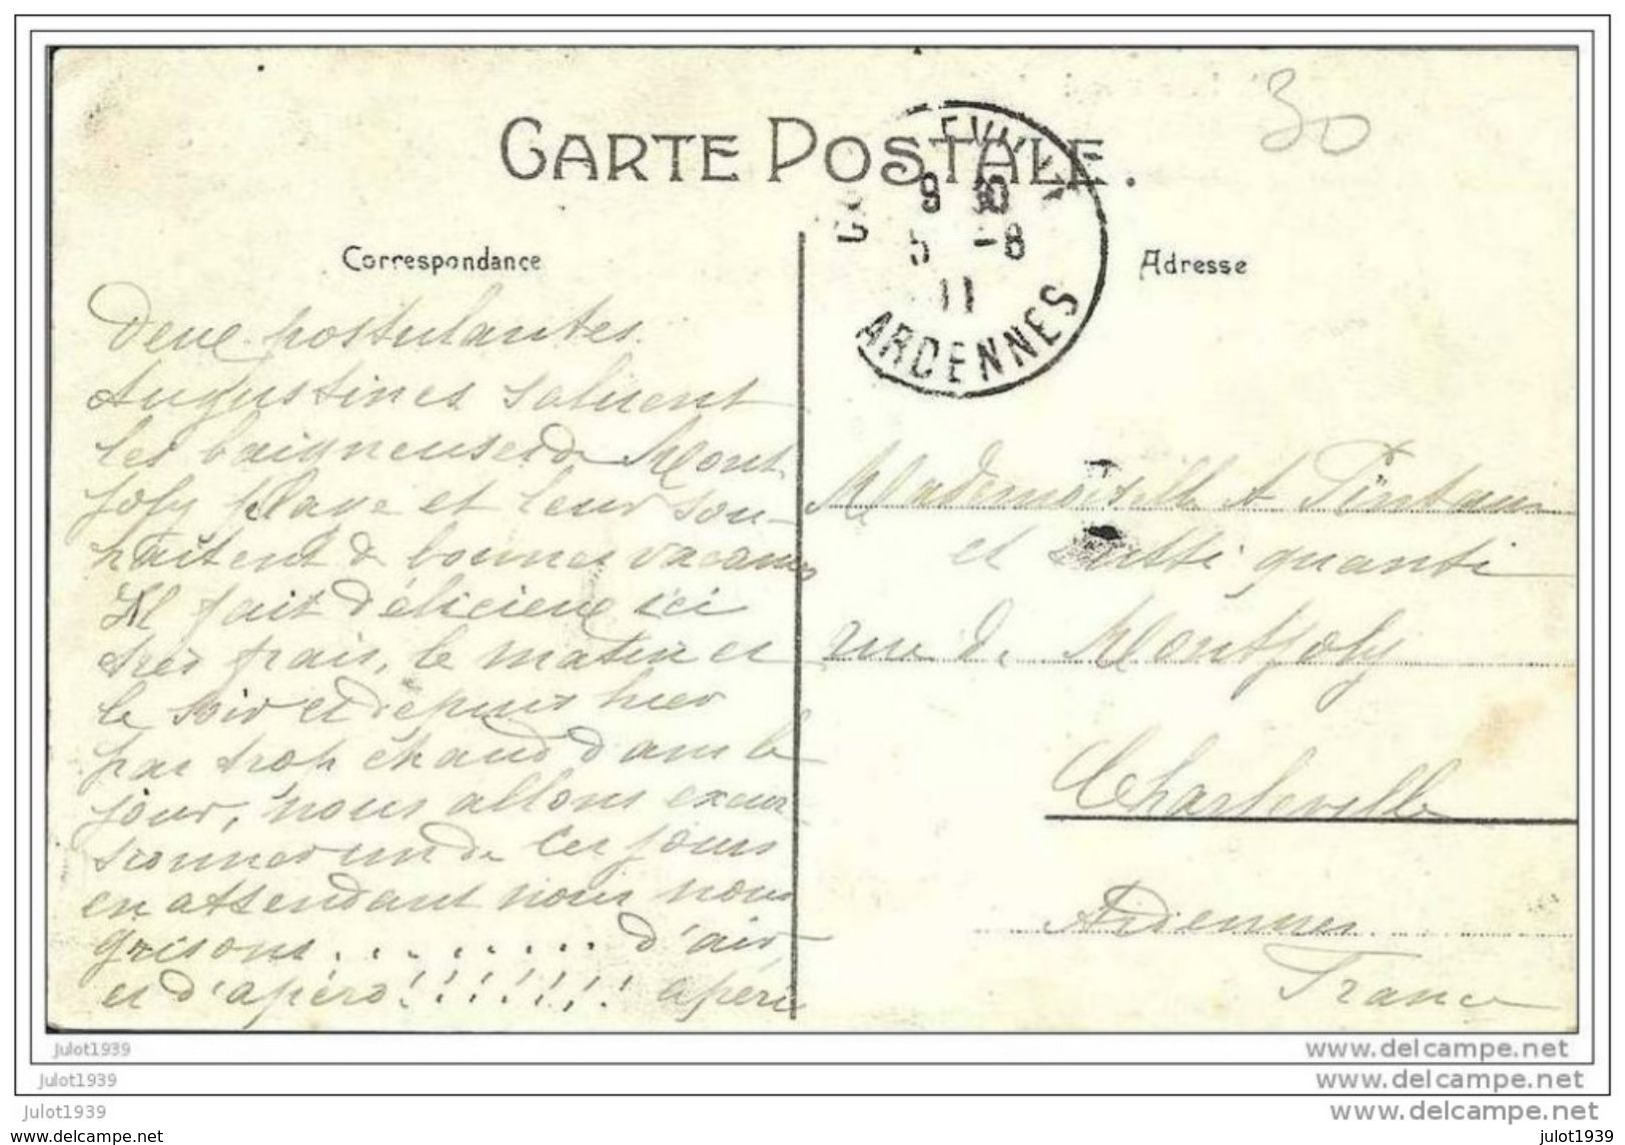 30
CARTE POSTALE.
EVILLE
9 30
5 -8
11
ARDENNES
Correspondance
Adresse
Deux postulantes
Augustines saluent
les baigneuses de Mont
joly plage et leur sou-
haitent de bonnes vacances
Il fait délicieux ici
très frais, le matin et
le soir et depuis hier
pas trop chaud dans le
jour, nous allons excur
sionner un de ces jours
en attendant nous nous
grisons ......... d'air
et d'apéro!!!!!!!! apéri
Mademoiselle A
et tutti quanti
rue de Montjoly
Charleville
Ardennes
France
Julot1939
Julot1939
Julot1939
www.delcampe.net
www.delcampe.net
www.delcampe.net
www.delcampe.net
julot1939